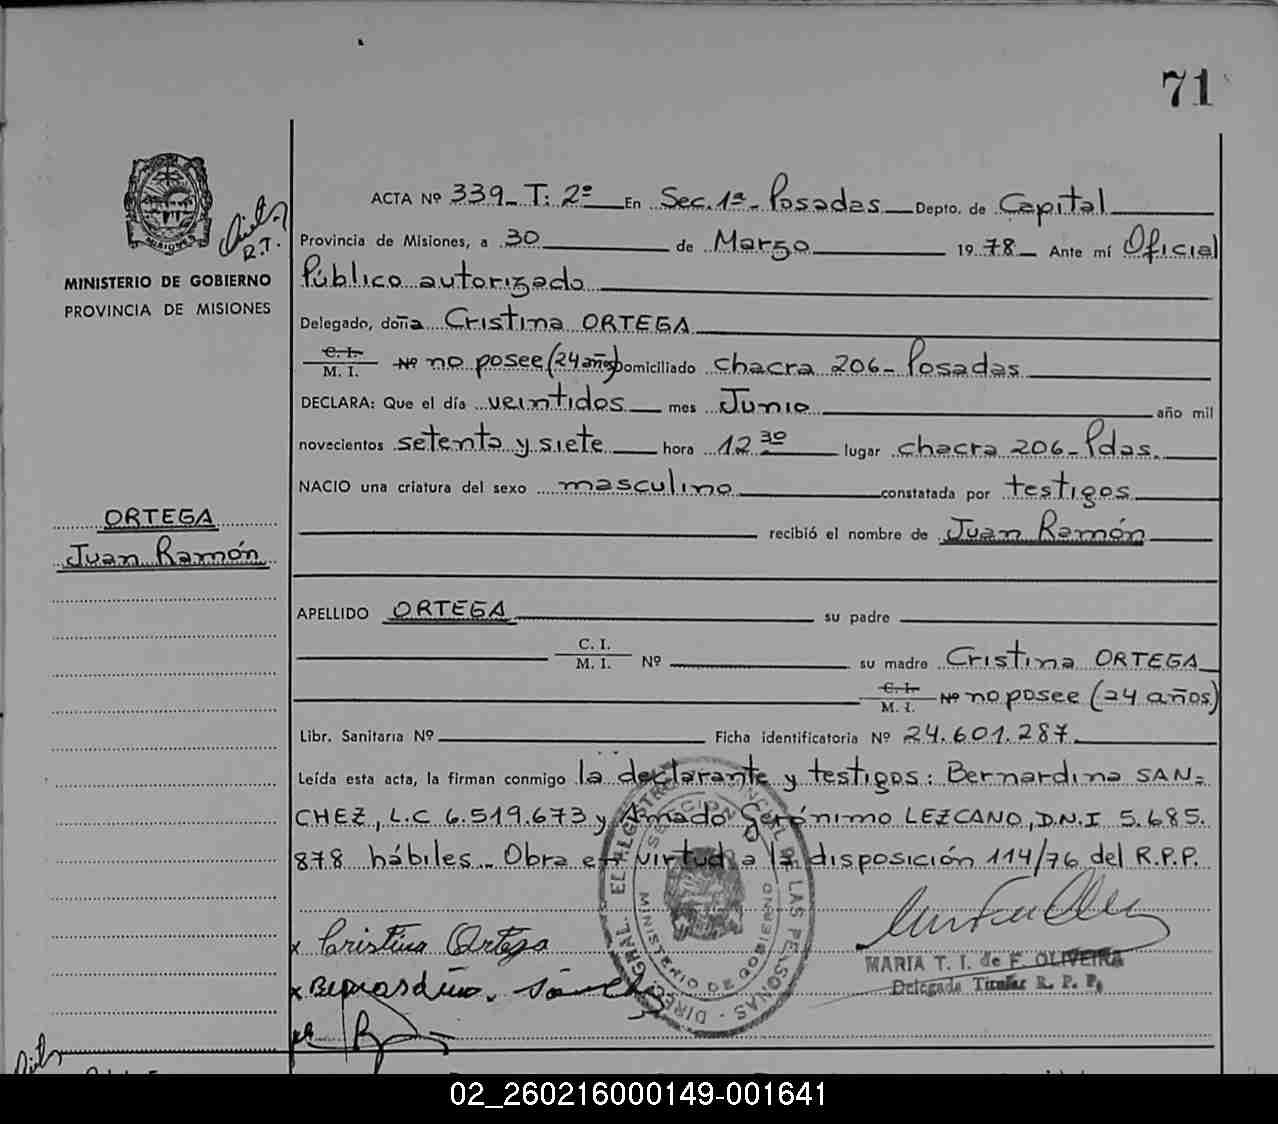 71
ACTA Nº 339_ T: 2º En Sec. 1ª_ Posadas Depto. de Capital
R.T.
Provincia de Misiones, a 30 de Marzo 19 78 Ante mí Oficial
MINISTERIO DE GOBIERNO
PROVINCIA DE MISIONES
Público autorizado
Delegado, doña Cristina ORTEGA
C. I.
M. I. Nº no posee (24 años) Domiciliado chacra 206_ Posadas
DECLARA: Que el día veintidos mes Junio año mil
novecientos setenta y siete hora 12 30 lugar chacra 206_ Pdas.
NACIO una criatura del sexo masculino constatada por testigos
ORTEGA
Juan Ramón
recibió el nombre de Juan Ramón
APELLIDO ORTEGA su padre
C. I.
M. I. Nº su madre Cristina ORTEGA
C. I.
M. I. Nº no posee (24 años)
Libr. Sanitaria Nº Ficha identificatoria Nº 24.601.287
Leída esta acta, la firman conmigo la declarante y testigos: Bernardina SAN=
CHEZ, L.C 6.519.673 y Amado Gerónimo LEZCANO, D.N.I 5.685.
878 hábiles_ Obra en virtud a la disposición 114/76 del R.P.P.
x Cristina Ortega
MARIA T. I. de F. OLIVEIRA
Delegada Titular R. P. P.
x Bernardina Sanchez
MINISTERIO DE GOBIERNO
02_260216000149-001641